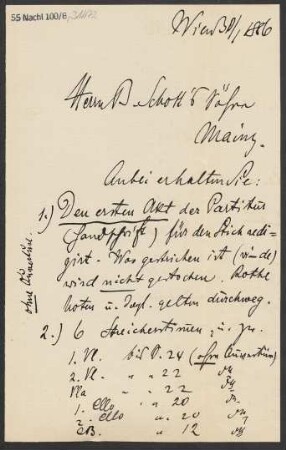 55 Nachl 100/B,
Wien 1886
Herrn B. Schott's Söhne
Mainz.
Anbei erhalten Sie:
1.) Den ersten Akt der Partitur
(Handschrift) für den Stich redi-
girt. Was gestrichen ist
wird nicht gestochen. Rothe
Noten u. dergl. gelten durchweg.
ohne Ouverture.
2.) 6 Streicherstimmen, u. zw.
1. Vl. bis S. 24 (ohne Ouverture)
2. Vl. " " 22
Vla " " 22
1. Cello " " 20
2. Cello " " 20
CB. " " 12